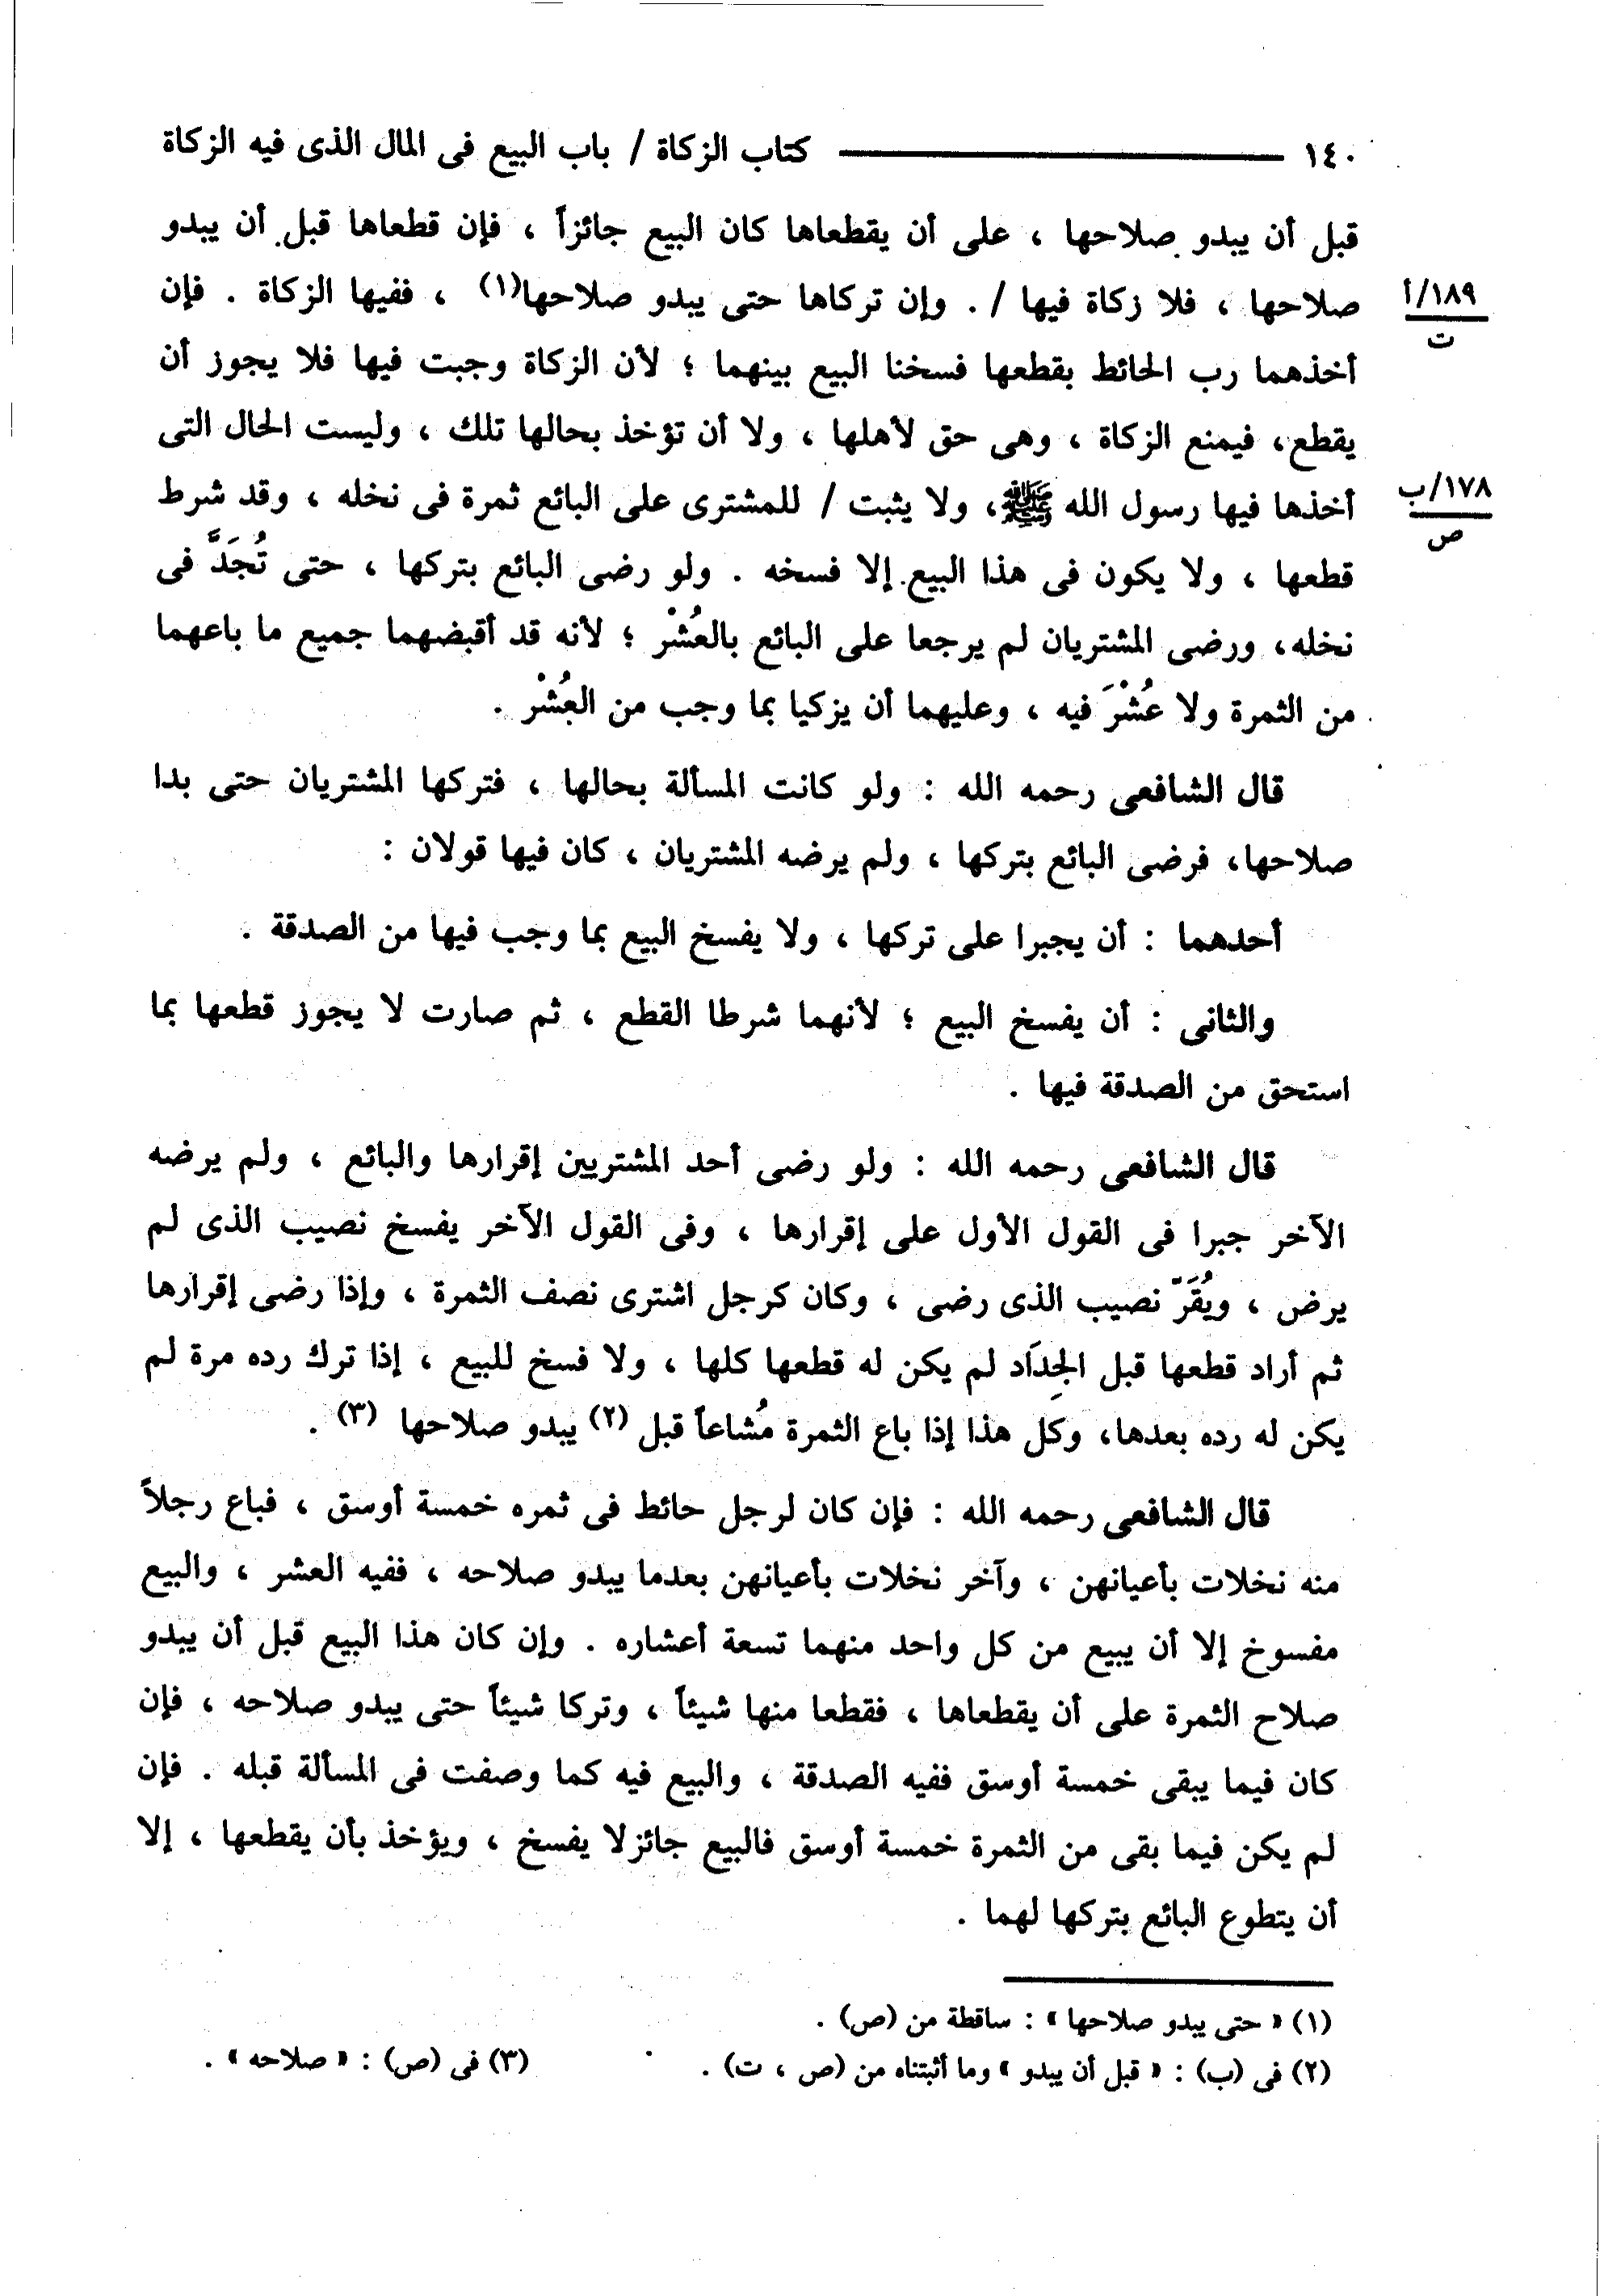 ١٤٠ كتاب الزكاة / باب البيع فى المال الذى فيه الزكاة
قبل أن يبدو صلاحها ، على أن يقطعاها كان البيع جائزاً ، فإن قطعاها قبل أن يبدو
صلاحها ، فلا زكاة فيها / . وإن تركاها حتى يبدو صلاحها(١) ، ففيها الزكاة . فإن
١٨٩/أ
ت
أخذهما رب الحائط بقطعها فسخنا البيع بينهما ؛ لأن الزكاة وجبت فيها فلا يجوز أن
يقطع، فيمنع الزكاة ، وهى حق لأهلها ، ولا أن تؤخذ بحالها تلك ، وليست الحال التى
أخذها فيها رسول الله ﷺ، ولا يثبت / للمشترى على البائع ثمرة فى نخله ، وقد شرط
١٧٨/ب
ص
قطعها ، ولا يكون فى هذا البيع إلا فسخه . ولو رضى البائع بتركها ، حتى تُجَدَّ فى
نخله، ورضى المشتريان لم يرجعا على البائع بالعُشْر ؛ لأنه قد أقبضهما جميع ما باعهما
من الثمرة ولا عُشْرَ فيه ، وعليهما أن يزكيا بما وجب من العُشْر .
قال الشافعى رحمه الله : ولو كانت المسألة بحالها ، فتركها المشتريان حتى بدا
صلاحها، فرضى البائع بتركها ، ولم يرضه المشتريان ، كان فيها قولان :
أحدهما : أن يجبرا على تركها ، ولا يفسخ البيع بما وجب فيها من الصدقة .
والثانى : أن يفسخ البيع ؛ لأنهما شرطا القطع ، ثم صارت لا يجوز قطعها بما
استحق من الصدقة فيها .
قال الشافعى رحمه الله : ولو رضى أحد المشتريين إقرارها والبائع ، ولم يرضه
الآخر جبرا فى القول الأول على إقرارها ، وفى القول الآخر يفسخ نصيب الذى لم
يرض ، ويُقَرّ نصيب الذى رضى ، وكان كرجل اشترى نصف الثمرة ، وإذا رضى إقرارها
ثم أراد قطعها قبل الجِدَاد لم يكن له قطعها كلها ، ولا فسخ للبيع ، إذا ترك رده مرة لم
يكن له رده بعدها، وكل هذا إذا باع الثمرة مُشاعاً قبل (٢) يبدو صلاحها (٣) .
قال الشافعى رحمه الله : فإن كان لرجل حائط فى ثمره خمسة أوسق ، فباع رجلاً
منه نخلات بأعيانهن ، وآخر نخلات بأعيانهن بعدما يبدو صلاحه ، ففيه العشر ، والبيع
مفسوخ إلا أن يبيع من كل واحد منهما تسعة أعشاره . وإن كان هذا البيع قبل أن يبدو
صلاح الثمرة على أن يقطعاها ، فقطعا منها شيئاً ، وتركا شيئاً حتى يبدو صلاحه ، فإن
كان فيما يبقى خمسة أوسق ففيه الصدقة ، والبيع فيه كما وصفت فى المسألة قبله . فإن
لم يكن فيما بقى من الثمرة خمسة أوسق فالبيع جائز لا يفسخ ، ويؤخذ بأن يقطعها ، إلا
أن يتطوع البائع بتركها لهما .
(١) « حتى يبدو صلاحها » : ساقطة من (ص) .
(٢) فى (ب) : « قبل أن يبدو » وما أثبتناه من (ص ، ت) . (٣) فى (ص) : « صلاحه » .